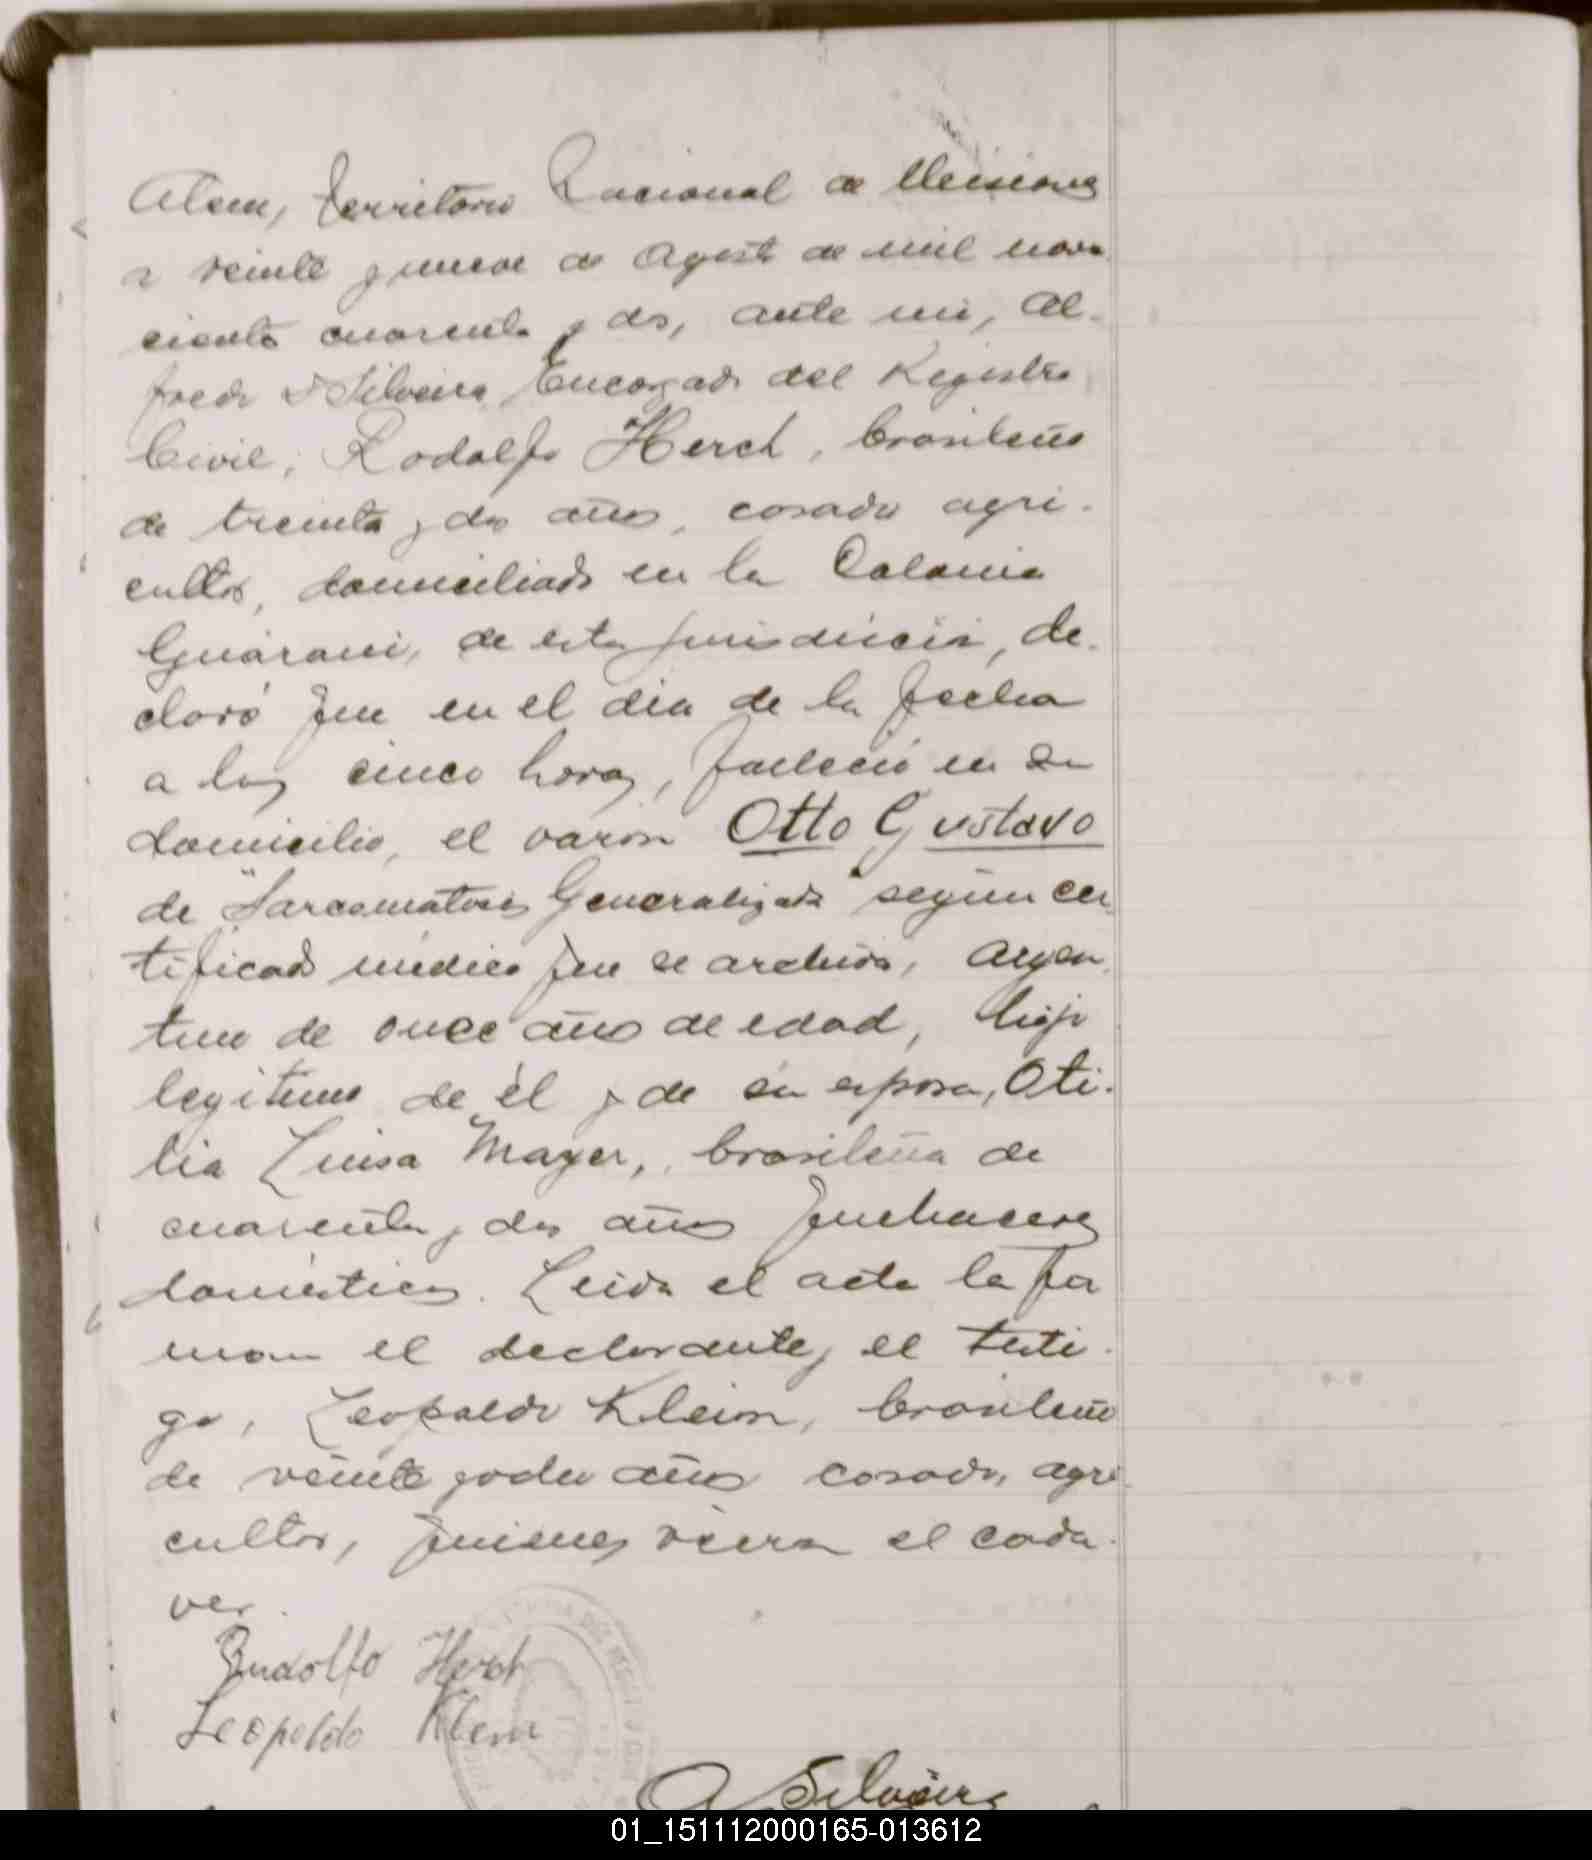 Alem, Territorio Nacional de Misiones
a veinte y nueve de Agosto de mil nove
ciento cuarenta y dos, ante mi, Al-
fredo Silveira Encargado del Registro
Civil, Rodolfo Herch, brasileño
de treinta y dos años, casado agri-
cultor, domiciliado en la Colonia
Guarani, de esta jurisdiccion, de-
claró que en el dia de la fecha
a las cinco horas, fallecio en su
domicilio, el varon Otto Gustavo
de "Sarcomatosis Generalizada" según cer
tificado médico que se archiva, argen
tino de once años de edad, hijo
legitimo de él y de su esposa, Oti-
lia Luisa Mayer, brasileña de
cuarenta y dos años quehaceres
domésticos. Leida el acta la fir
man el declarante y el testi-
go, Leopoldo Klein, brasileño
de veinte y ocho años casado, agri
cultor, quienes vieron el cada-
ver.
Rudolfo Herch
Leopoldo Klein
A Silveira
01_151112000165-013612